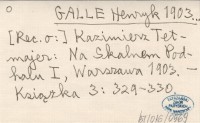 o GALLE Henryk 1903...
[Rec. o:] Kazimierz Tet-
majer: Na Skalnem Pod-
halu I, Warszawa 1903. —
Książka 3: 329-330.